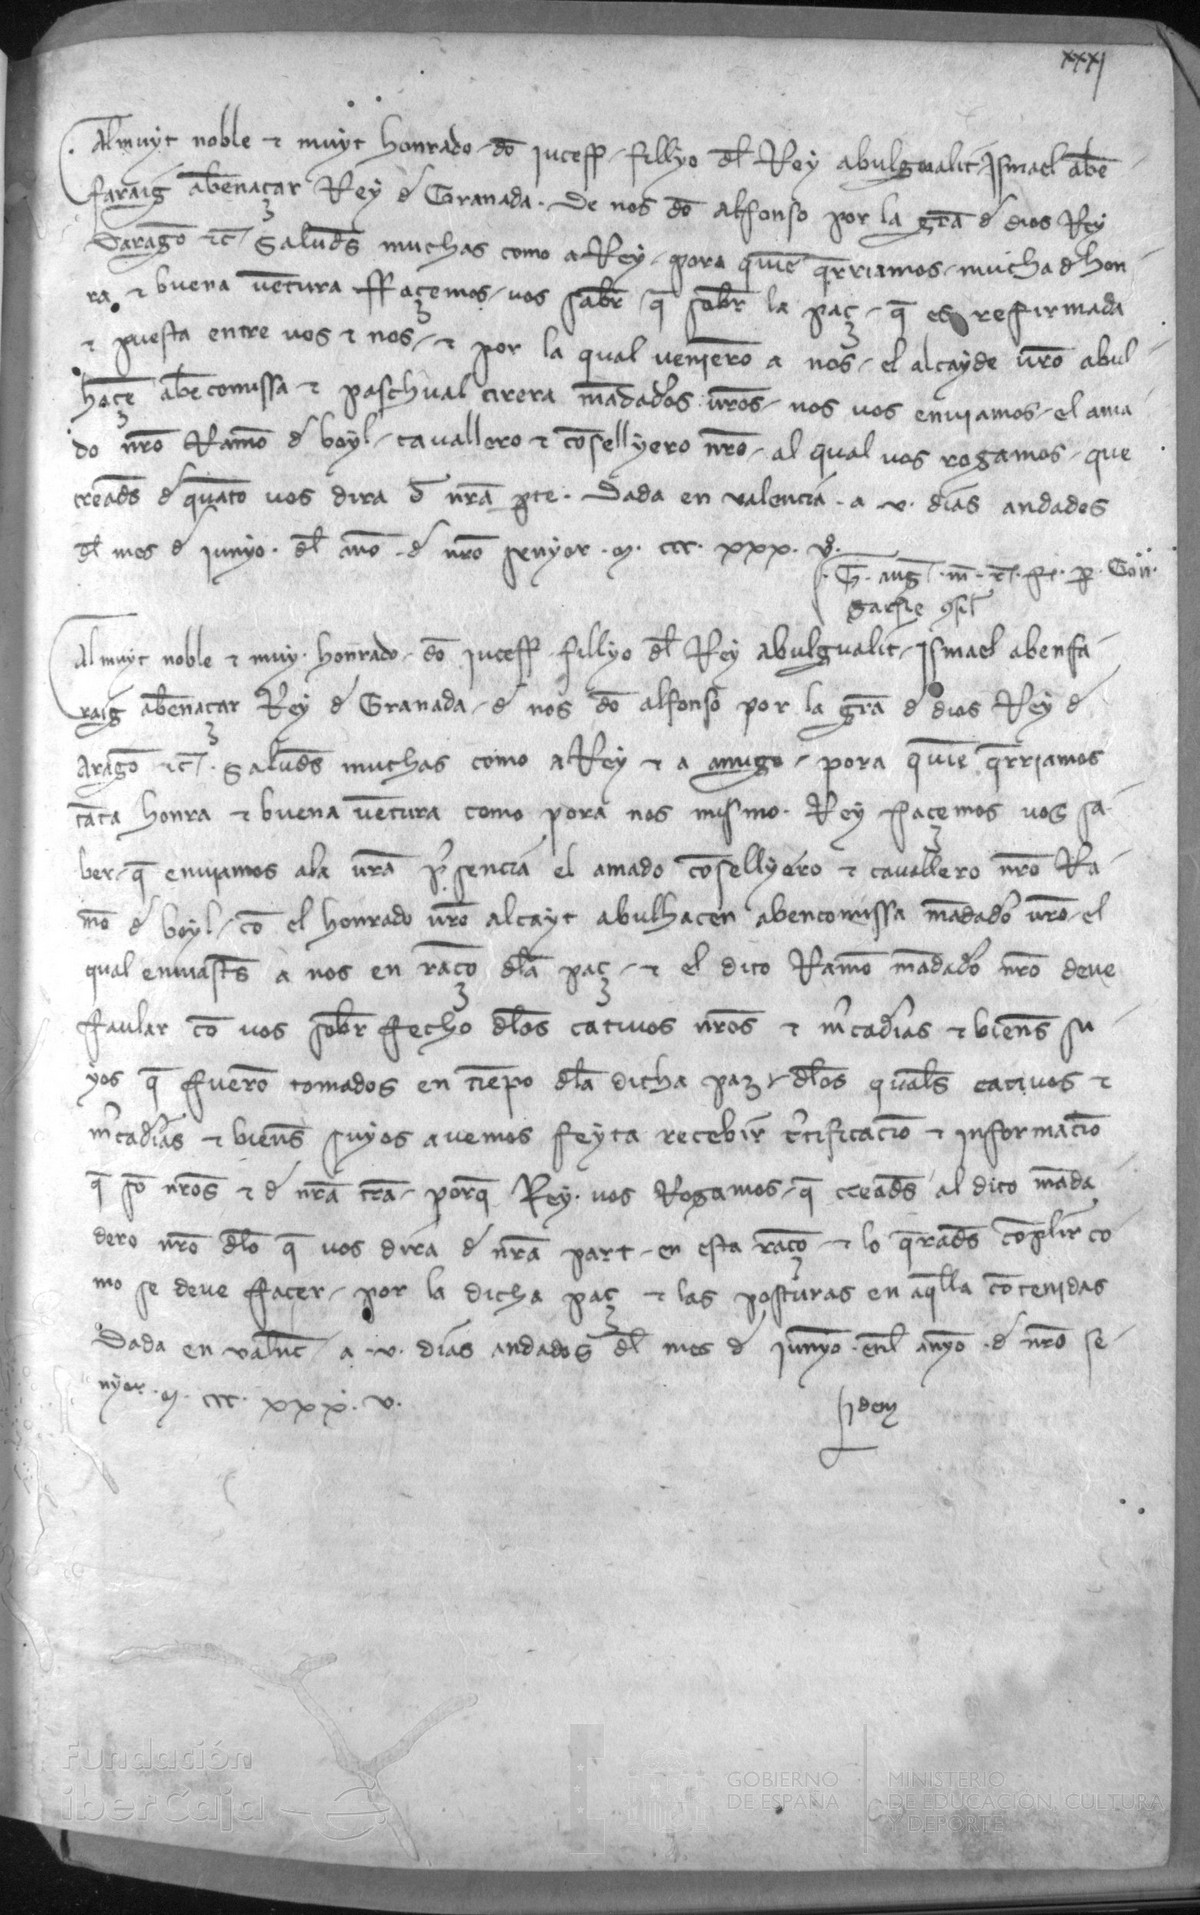 xxxj
Al muyt noble ⁊ muyt honrado do̅ juceff fillyo dl̅ Rey abulgualit Jsmael abe̅
faraig abe̅naçar Rey d̅ Granada. De nos do̅ alfonso por la gr̅a d̅ dios Rey
Darago̅ ⁊c̅ Saluds̅ muchas como a Rey pora quie̅ q̅rriamos mucha d̅ hon
ra ⁊ buena ve̅tura ffaçemos vos sab̅r q̅ sob̅r la paç q̅ es refirmada
⁊ puesta entre vos ⁊ nos ⁊ por la qual veniero̅ a nos el alcayde vr̅o abul
haçe̅ abe̅comissa ⁊ paschual cirera ma̅dados̅ vr̅os nos vos enviamos el ama
do nr̅o Ramo̅ d̅ boyl cavallero ⁊ co̅sellyero nr̅o al qual vos rogamos que
creads̅ d̅ qua̅to vos dira d̅ nr̅a p̱te. Dada en valencia a v. dias andados
dl̅ mes d̅ junyo. dl̅ an̅o d̅ nr̅o senyor .m. ccc. xxx. v̊.
garsie
Al muyt noble ⁊ muy honrado do̅ juceff fillyo dl̅ Rey abulgualit Jsmael abenfa
raig abe̅naçar Rey d̅ Granada d̅ nos do̅ alfonso por la gr̅a d̅ dios Rey d̅
Arago̅ ⁊c̅. Saluds̅ muchas como a Rey ⁊ a amigo pora quie̅ q̅rriamos
ta̅ta honra ⁊ buena ve̅tura como pora nos mismo. Rey façemos vos sa
ber q̅ enviamos ala vr̅a p̅sencia el amado co̅sellyero ⁊ cavallero nr̅o Ra
mo̅ d̅ boyl co̅ el honrado vr̅o alcayt abulhacen abencomissa ma̅dado̅ vr̅o el
qual enviasts̅ a nos en raço̅ dl̅a paç ⁊ el dito Ramo̅ ma̅dado̅ nr̅o deve
faular co̅ vos sob̅r fecho dl̅os cativos nr̅os ⁊ m̅cad̅ias ⁊ biens̅ su
yos q̅ fuero̅ tomados en tie̅po dl̅a dicha paz dl̅os quals̅ cativos ⁊
m̅cad̅ias ⁊ biens̅ suyos avemos feyta recebir c̅tificacio̅ ⁊ informacio̅
q̅ so̅ nr̅os ⁊ d̅ nr̅a t̅ra porq̅ Rey vos Rogamos q̅ creads̅ al dito ma̅da
dero nr̅o dl̅o q̅ vos dira d̅ nr̅a part en esta raço̅ ⁊ lo q̅rads̅ co̅plir co
mo se deve ffaçer por la dicha paç ⁊ las posturas en aq̅lla co̅tenidas
Dada en vale̅nc a .v. dias andados dl̅ mes d̅ junyo enl̅ anyo d̅ nr̅o se
nyor .m. ccc. xxx. v.
Jdem
Fundación
iberCaja
GOBIERNO
DE ESPAÑA
MINISTERIO
DE EDUCACIÓN, CULTURA
Y DEPORTE